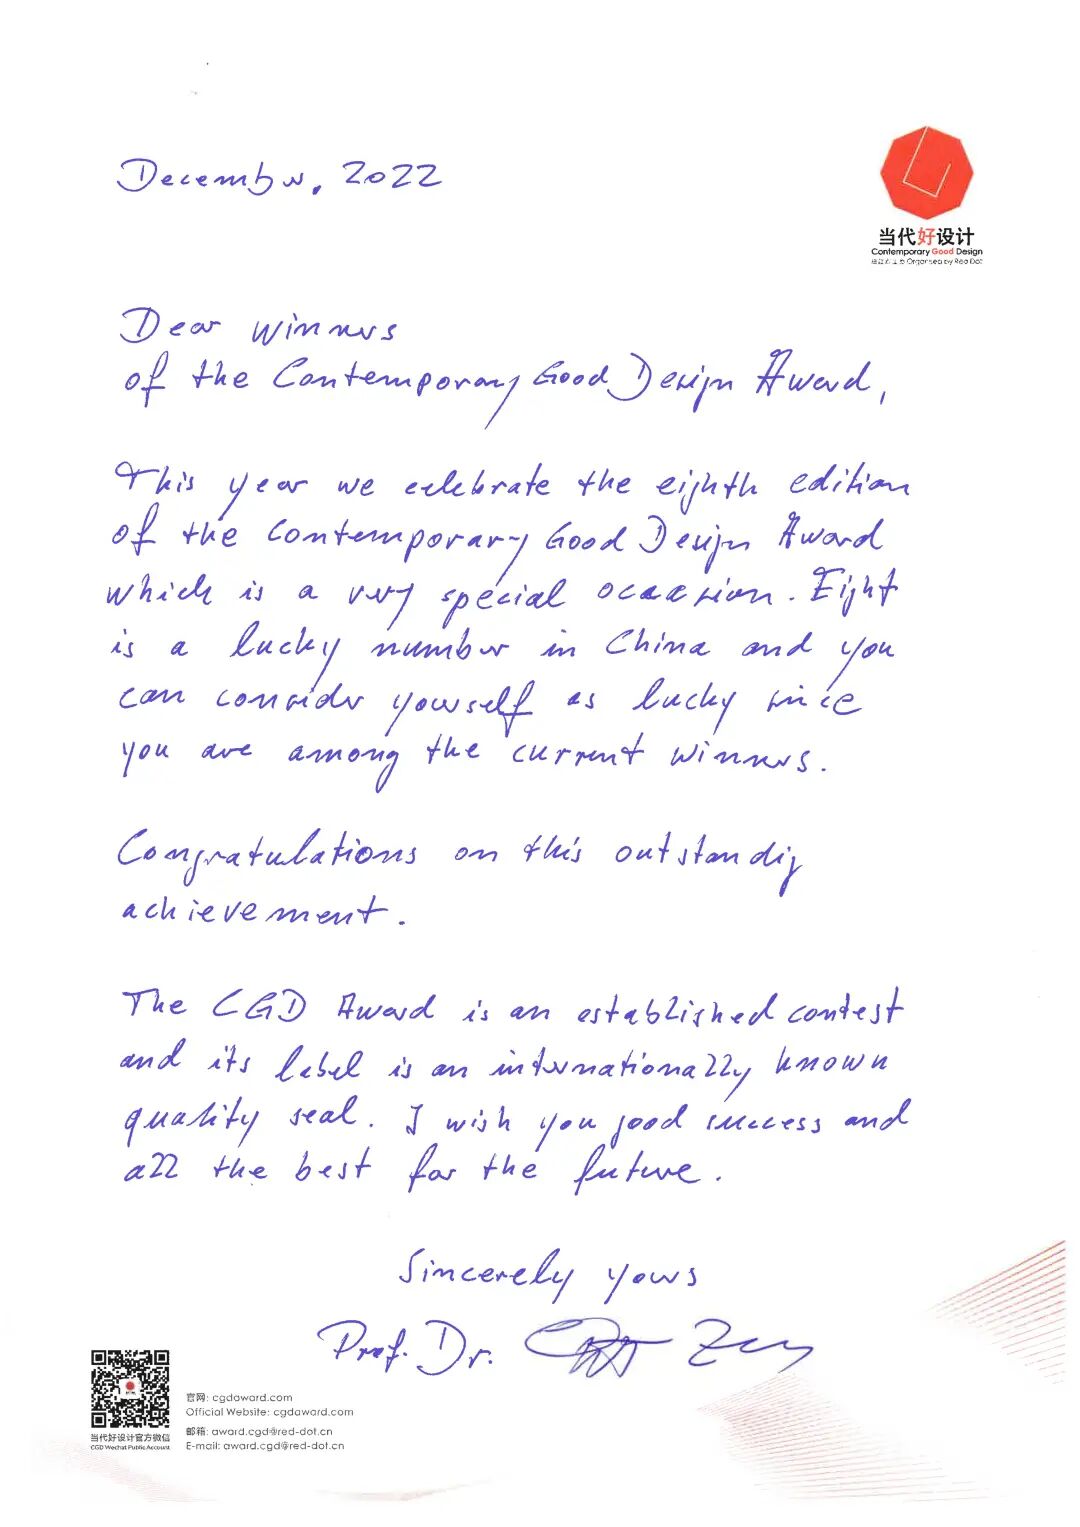 December, 2022
当代好设计
Contemporary Good Design
Organised by Red Dot
Dear winners
of the Contemporary Good Design Award,
This year we celebrate the eighth edition
of the Contemporary Good Design Award
which is a very special occasion. Eight
is a lucky number in China and you
can consider yourself as lucky since
you are among the current winners.
Congratulations on this outstandig
achievement.
The CGD Award is an established contest
and its label is an internationally known
quality seal. I wish you good success and
all the best for the future.
Sincerely yours
Prof. Dr.
当代好设计官方微信
CGD Wechat Public Account
官网: cgdaward.com
Official Website: cgdaward.com
邮箱: award.cgd@red-dot.cn
E-mail: award.cgd@red-dot.cn